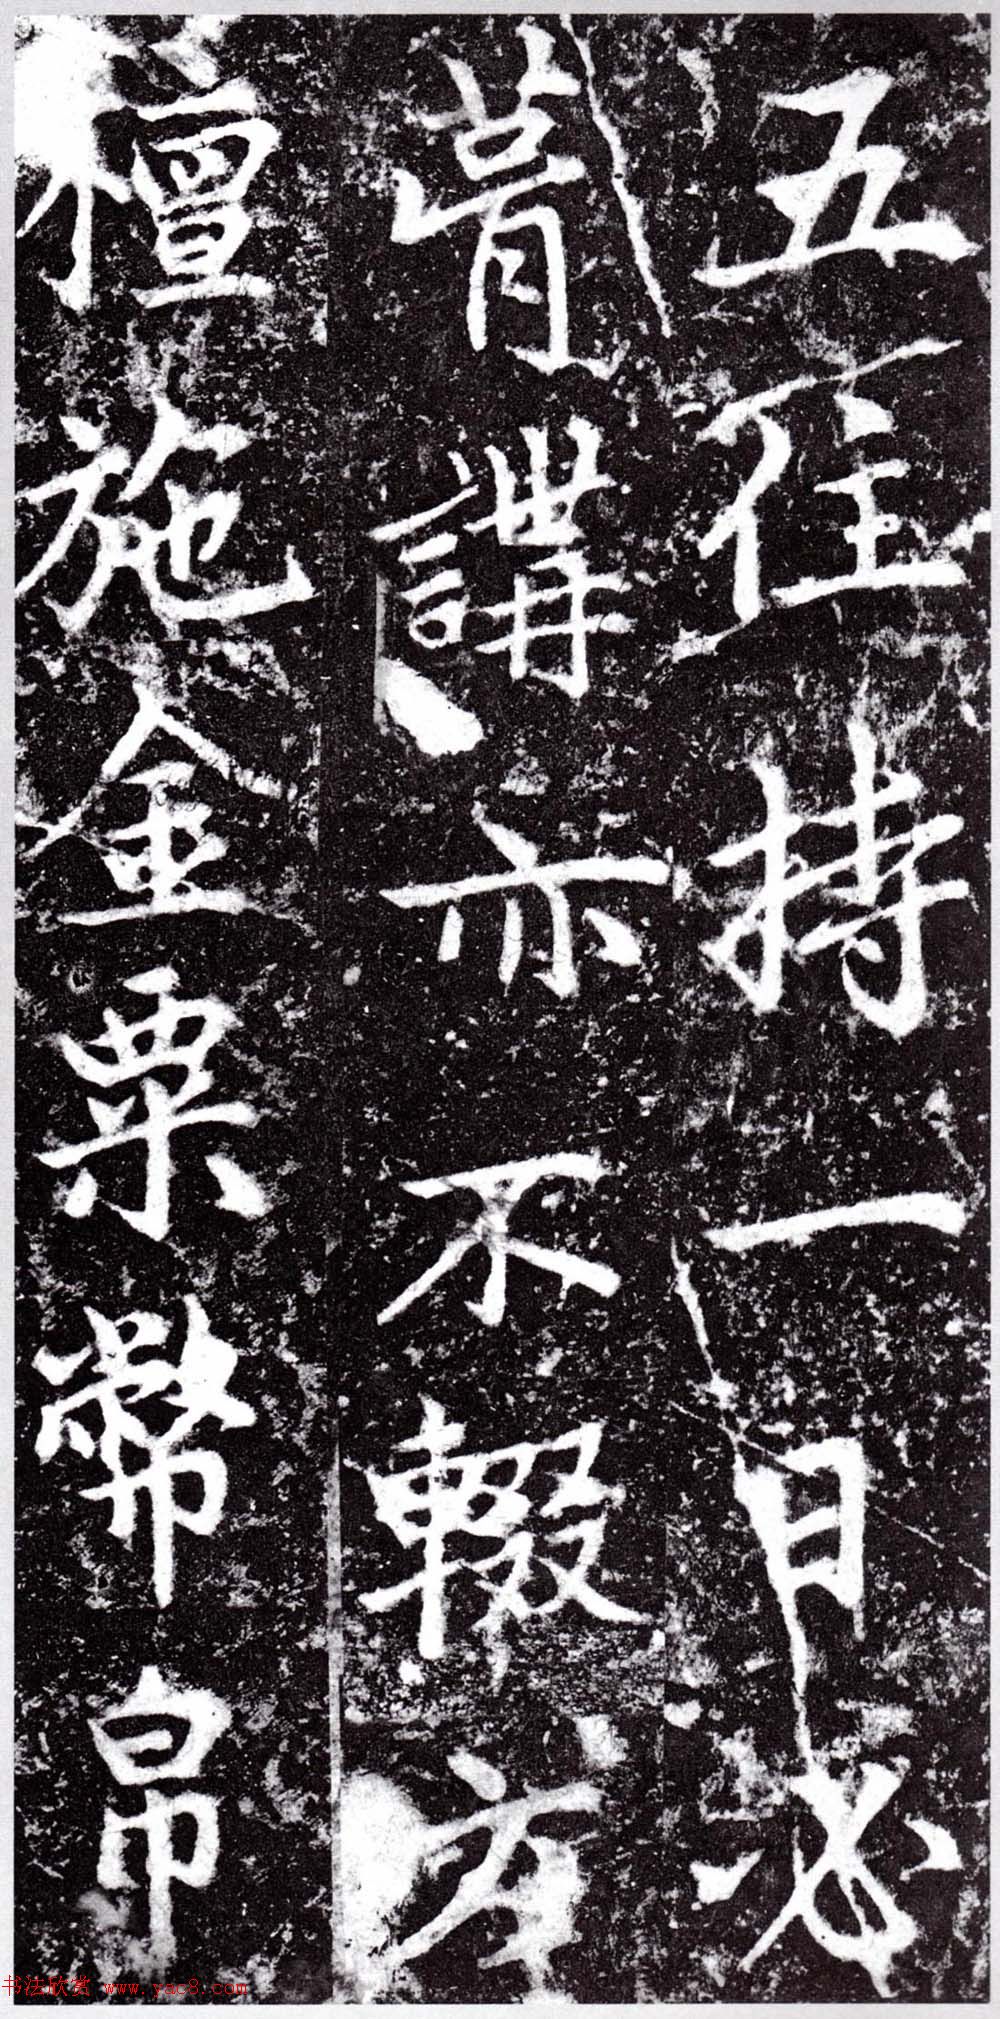 五住持一日必
講亦不輟
檀施金粟幣帛
书法欣赏 www.yac8.com